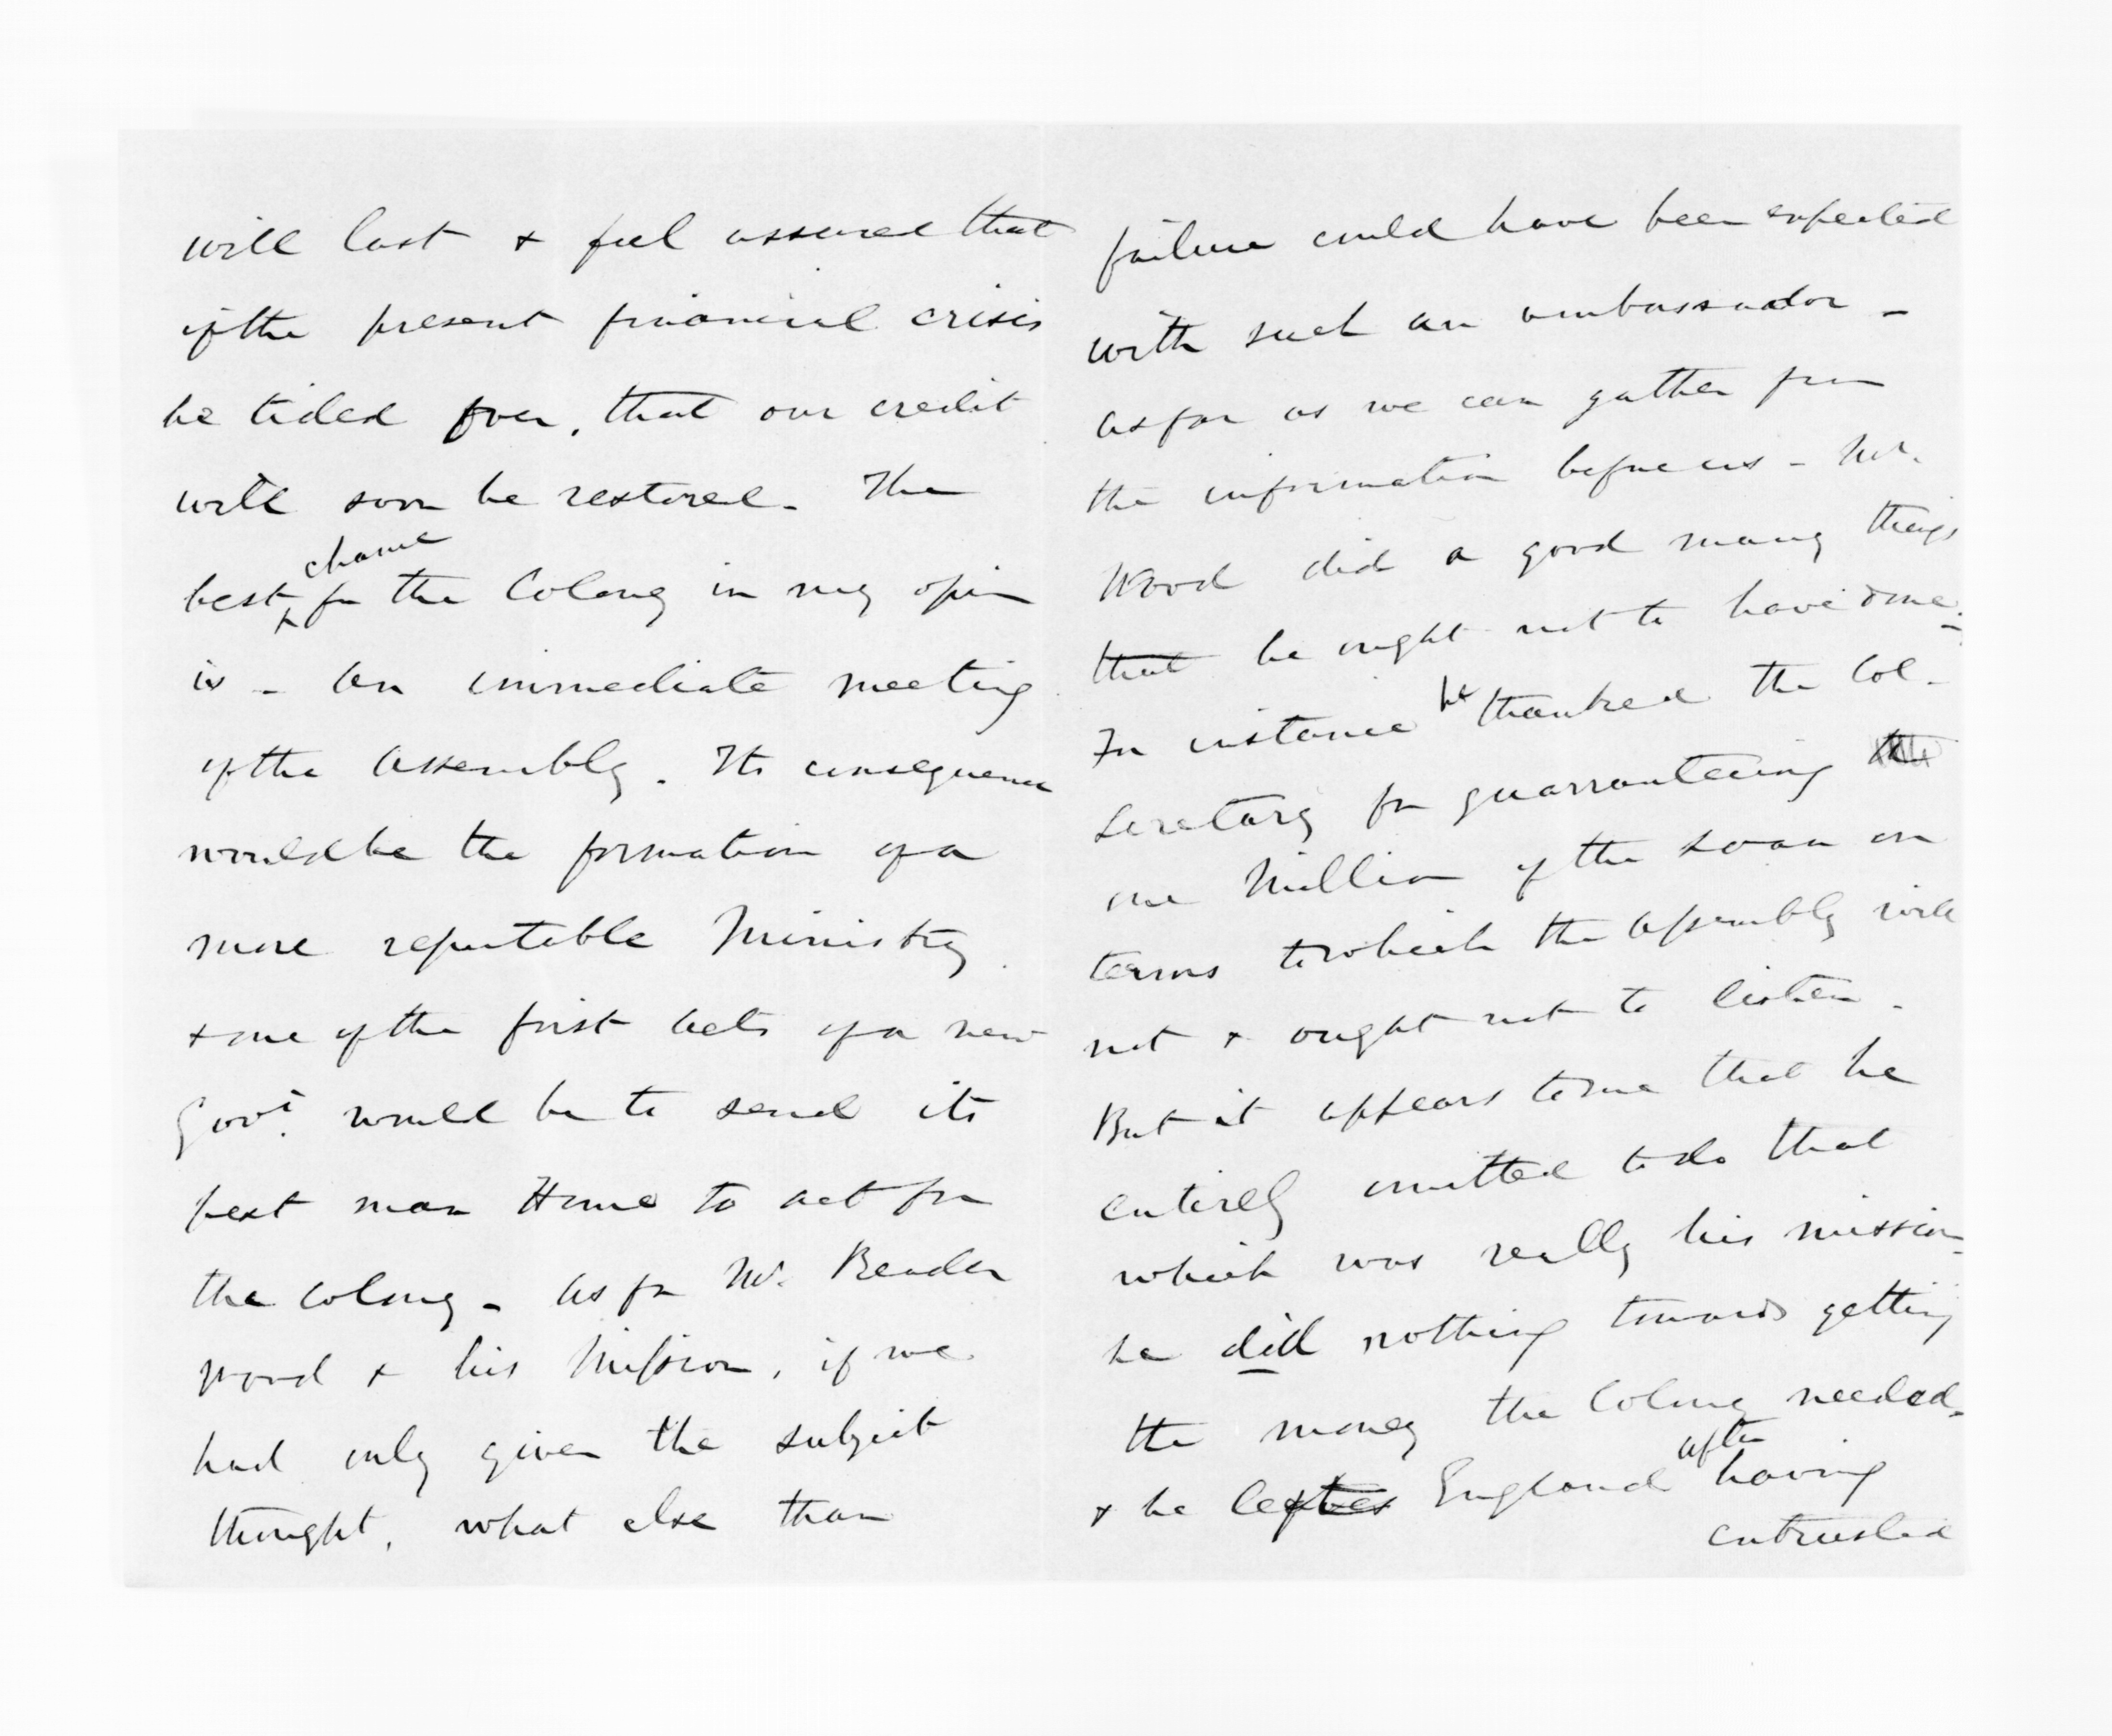 will last & feel assured that
if the present financial crisis
be tided over, that our credit
will soon be restored. The
chance
best for the Colony in my opin
is - an immediate meeting
of the Assembly. Its consequence
would be the formation of a
more reputable Ministry
& one of the first acts of a new
Govt. would be to send its
best man Home to act for
the colony - as for Mr. Reader
Wood & his Mission, if we
had only given the subject
thought, what else than
failure could have been expected
with such an ambassador -
as far as we can gather from
the information before us - Mr.
Wood did a good many things
that he ought not to have done.
For instance he thanked the Col-
Secretary for guarranteeing
one Million of the Loan on
terms to which the Assembly will
not & ought not to listen -
But it appears to me that he
entirely omitted to do that
which was really his mission -
he did nothing towards getting
the money the Colony needed -
after
& he left England having
entrusted